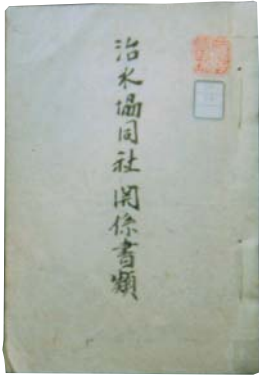 治水協同社関係書類